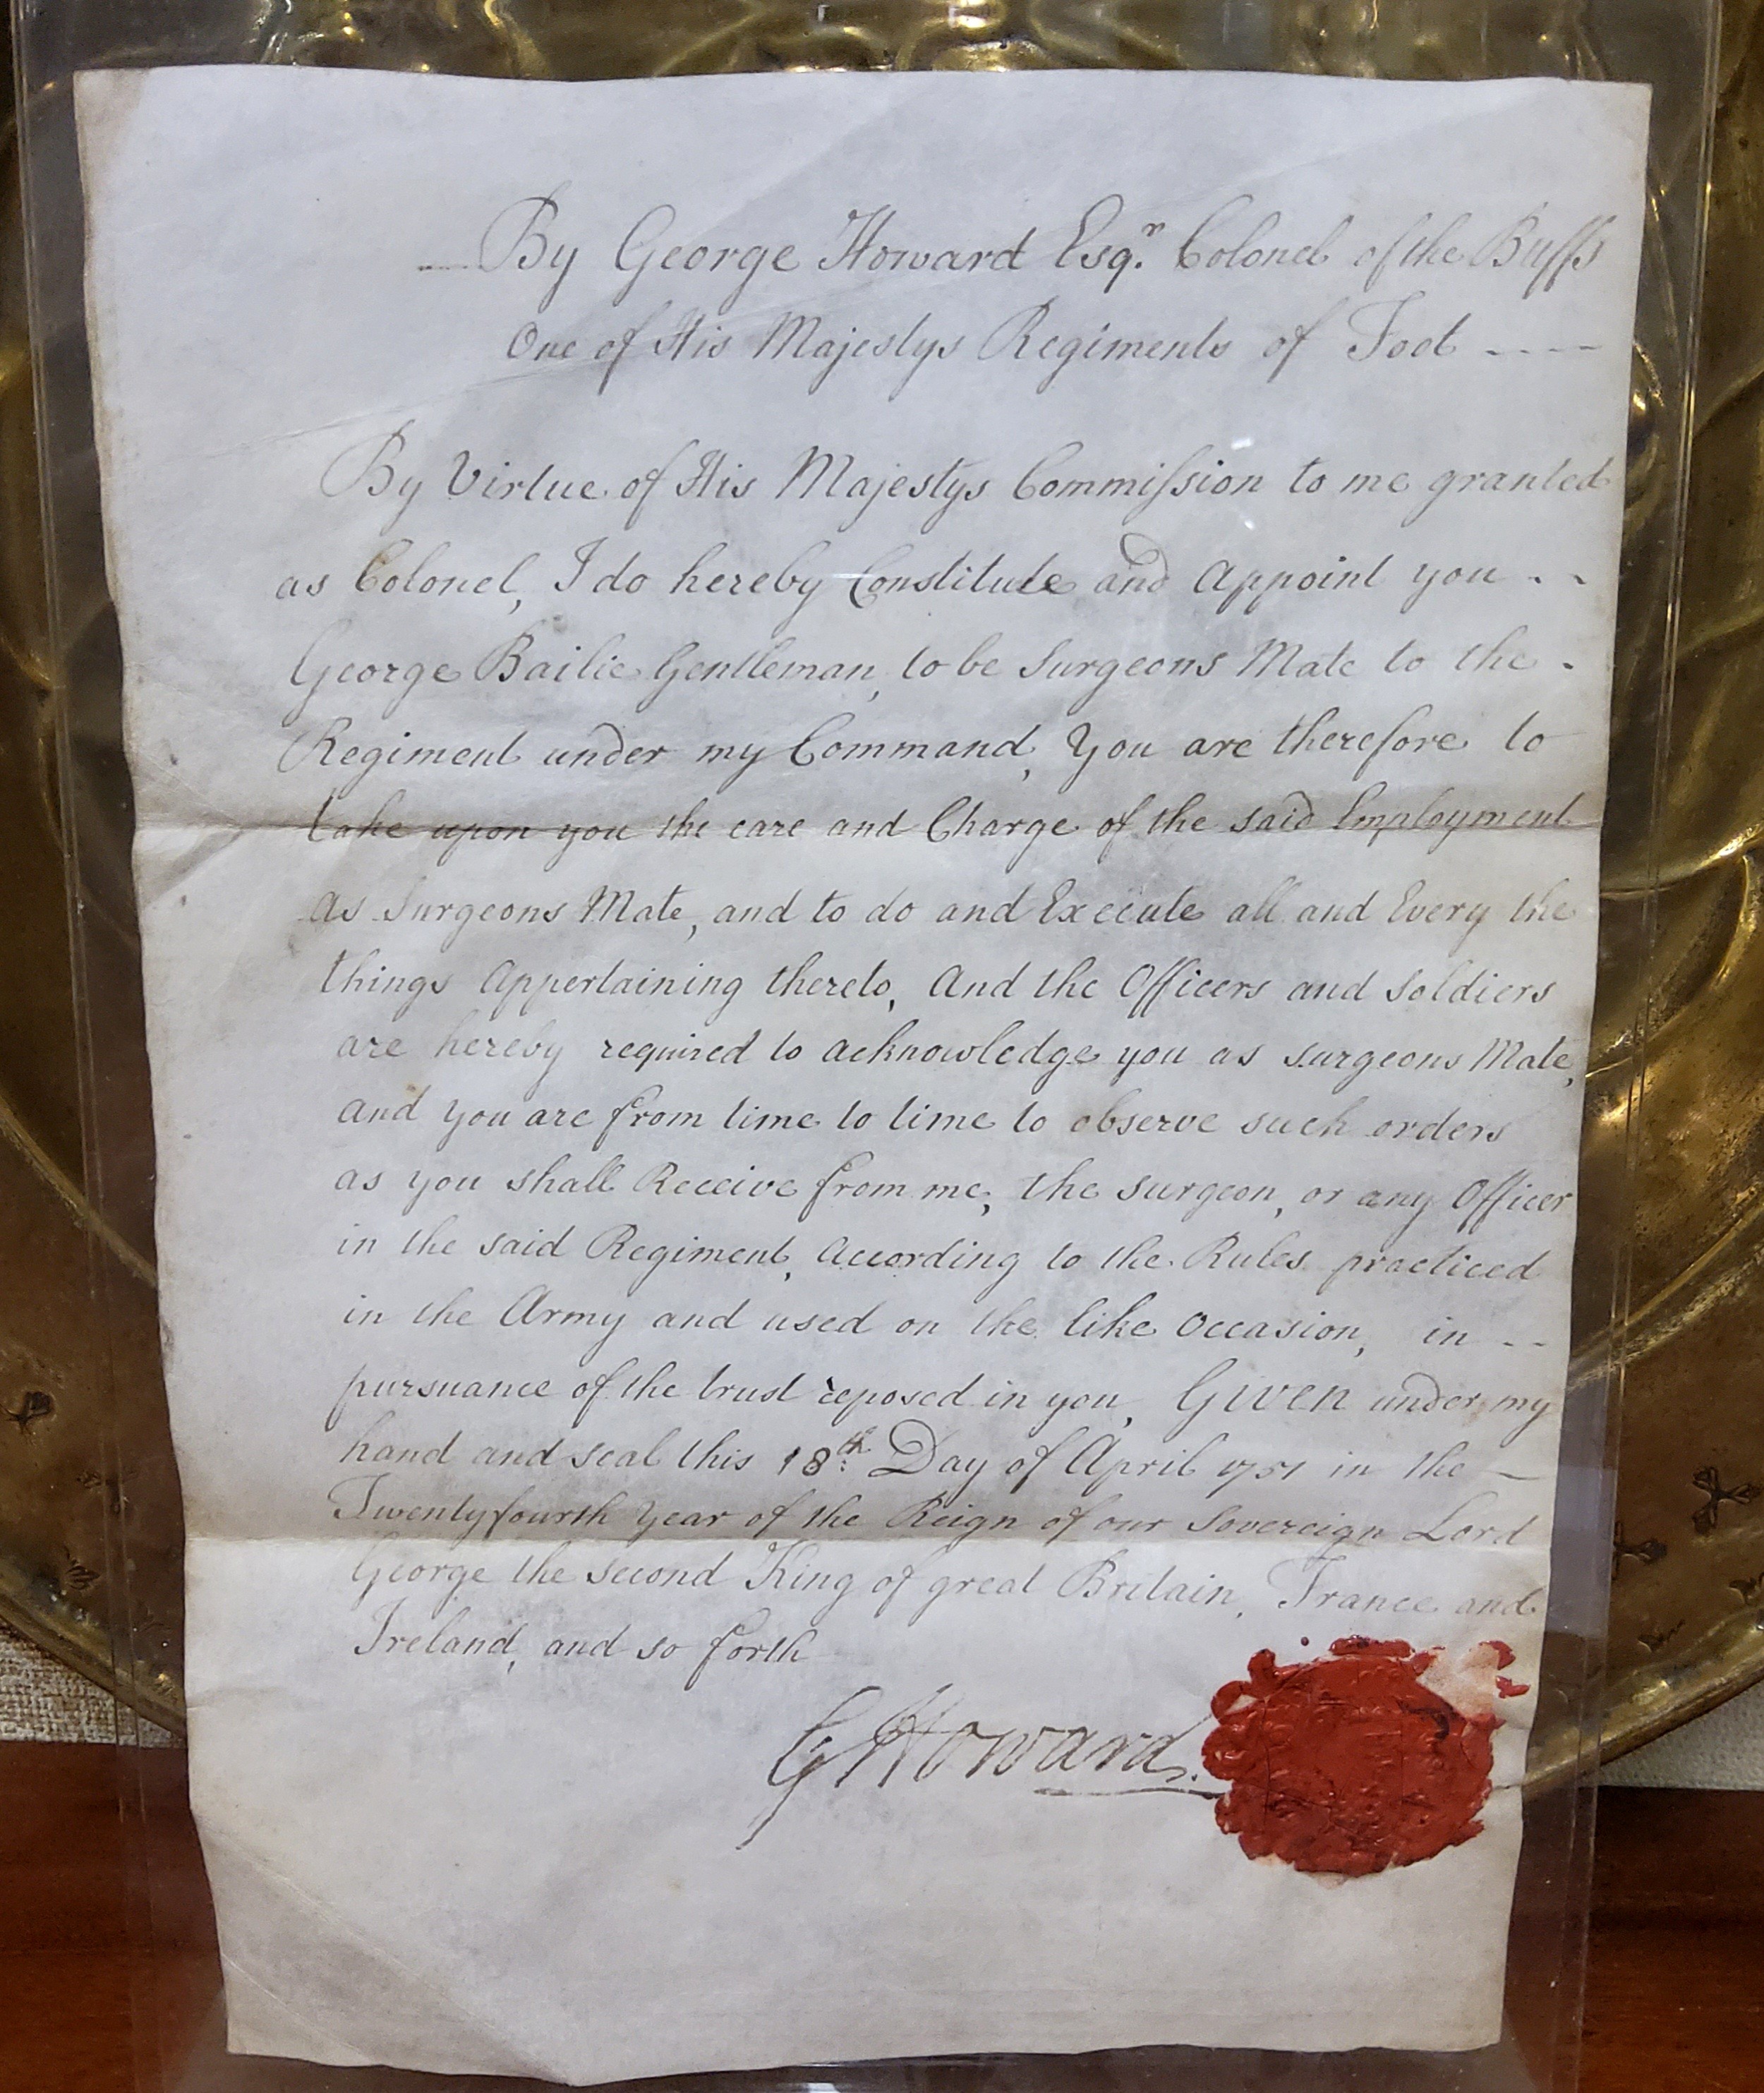 By George Howard Esqr. Colonel of the Buffs
One of His Majestys Regiments of Foot ----
By Virtue of His Majestys Commiſsion to me granted
as Colonel, I do hereby Constitute and Appoint you - -
George Bailie Gentleman, to be Surgeons Mate to the -
Regiment under my Command, You are therefore to
take upon you the care and Charge of the said Employment
As Surgeons Mate, and to do and Execute all and Every the
things Appertaining thereto, And the Officers and Soldiers
are hereby required to acknowledge you as surgeons Mate,
and you are from time to time to observe such orders
as you shall Receive from me, the surgeon, or any Officer
in the said Regiment, According to the Rules practiced
in the Army and used on the like Occasion, in - -
pursuance of the trust reposed in you, Given under my
hand and seal this 18th. Day of April 1751 in the —
Twentyfourth Year of the Reign of our Sovereign Lord
George the second King of great Britain, France and
Ireland, and so forth
G Howard.